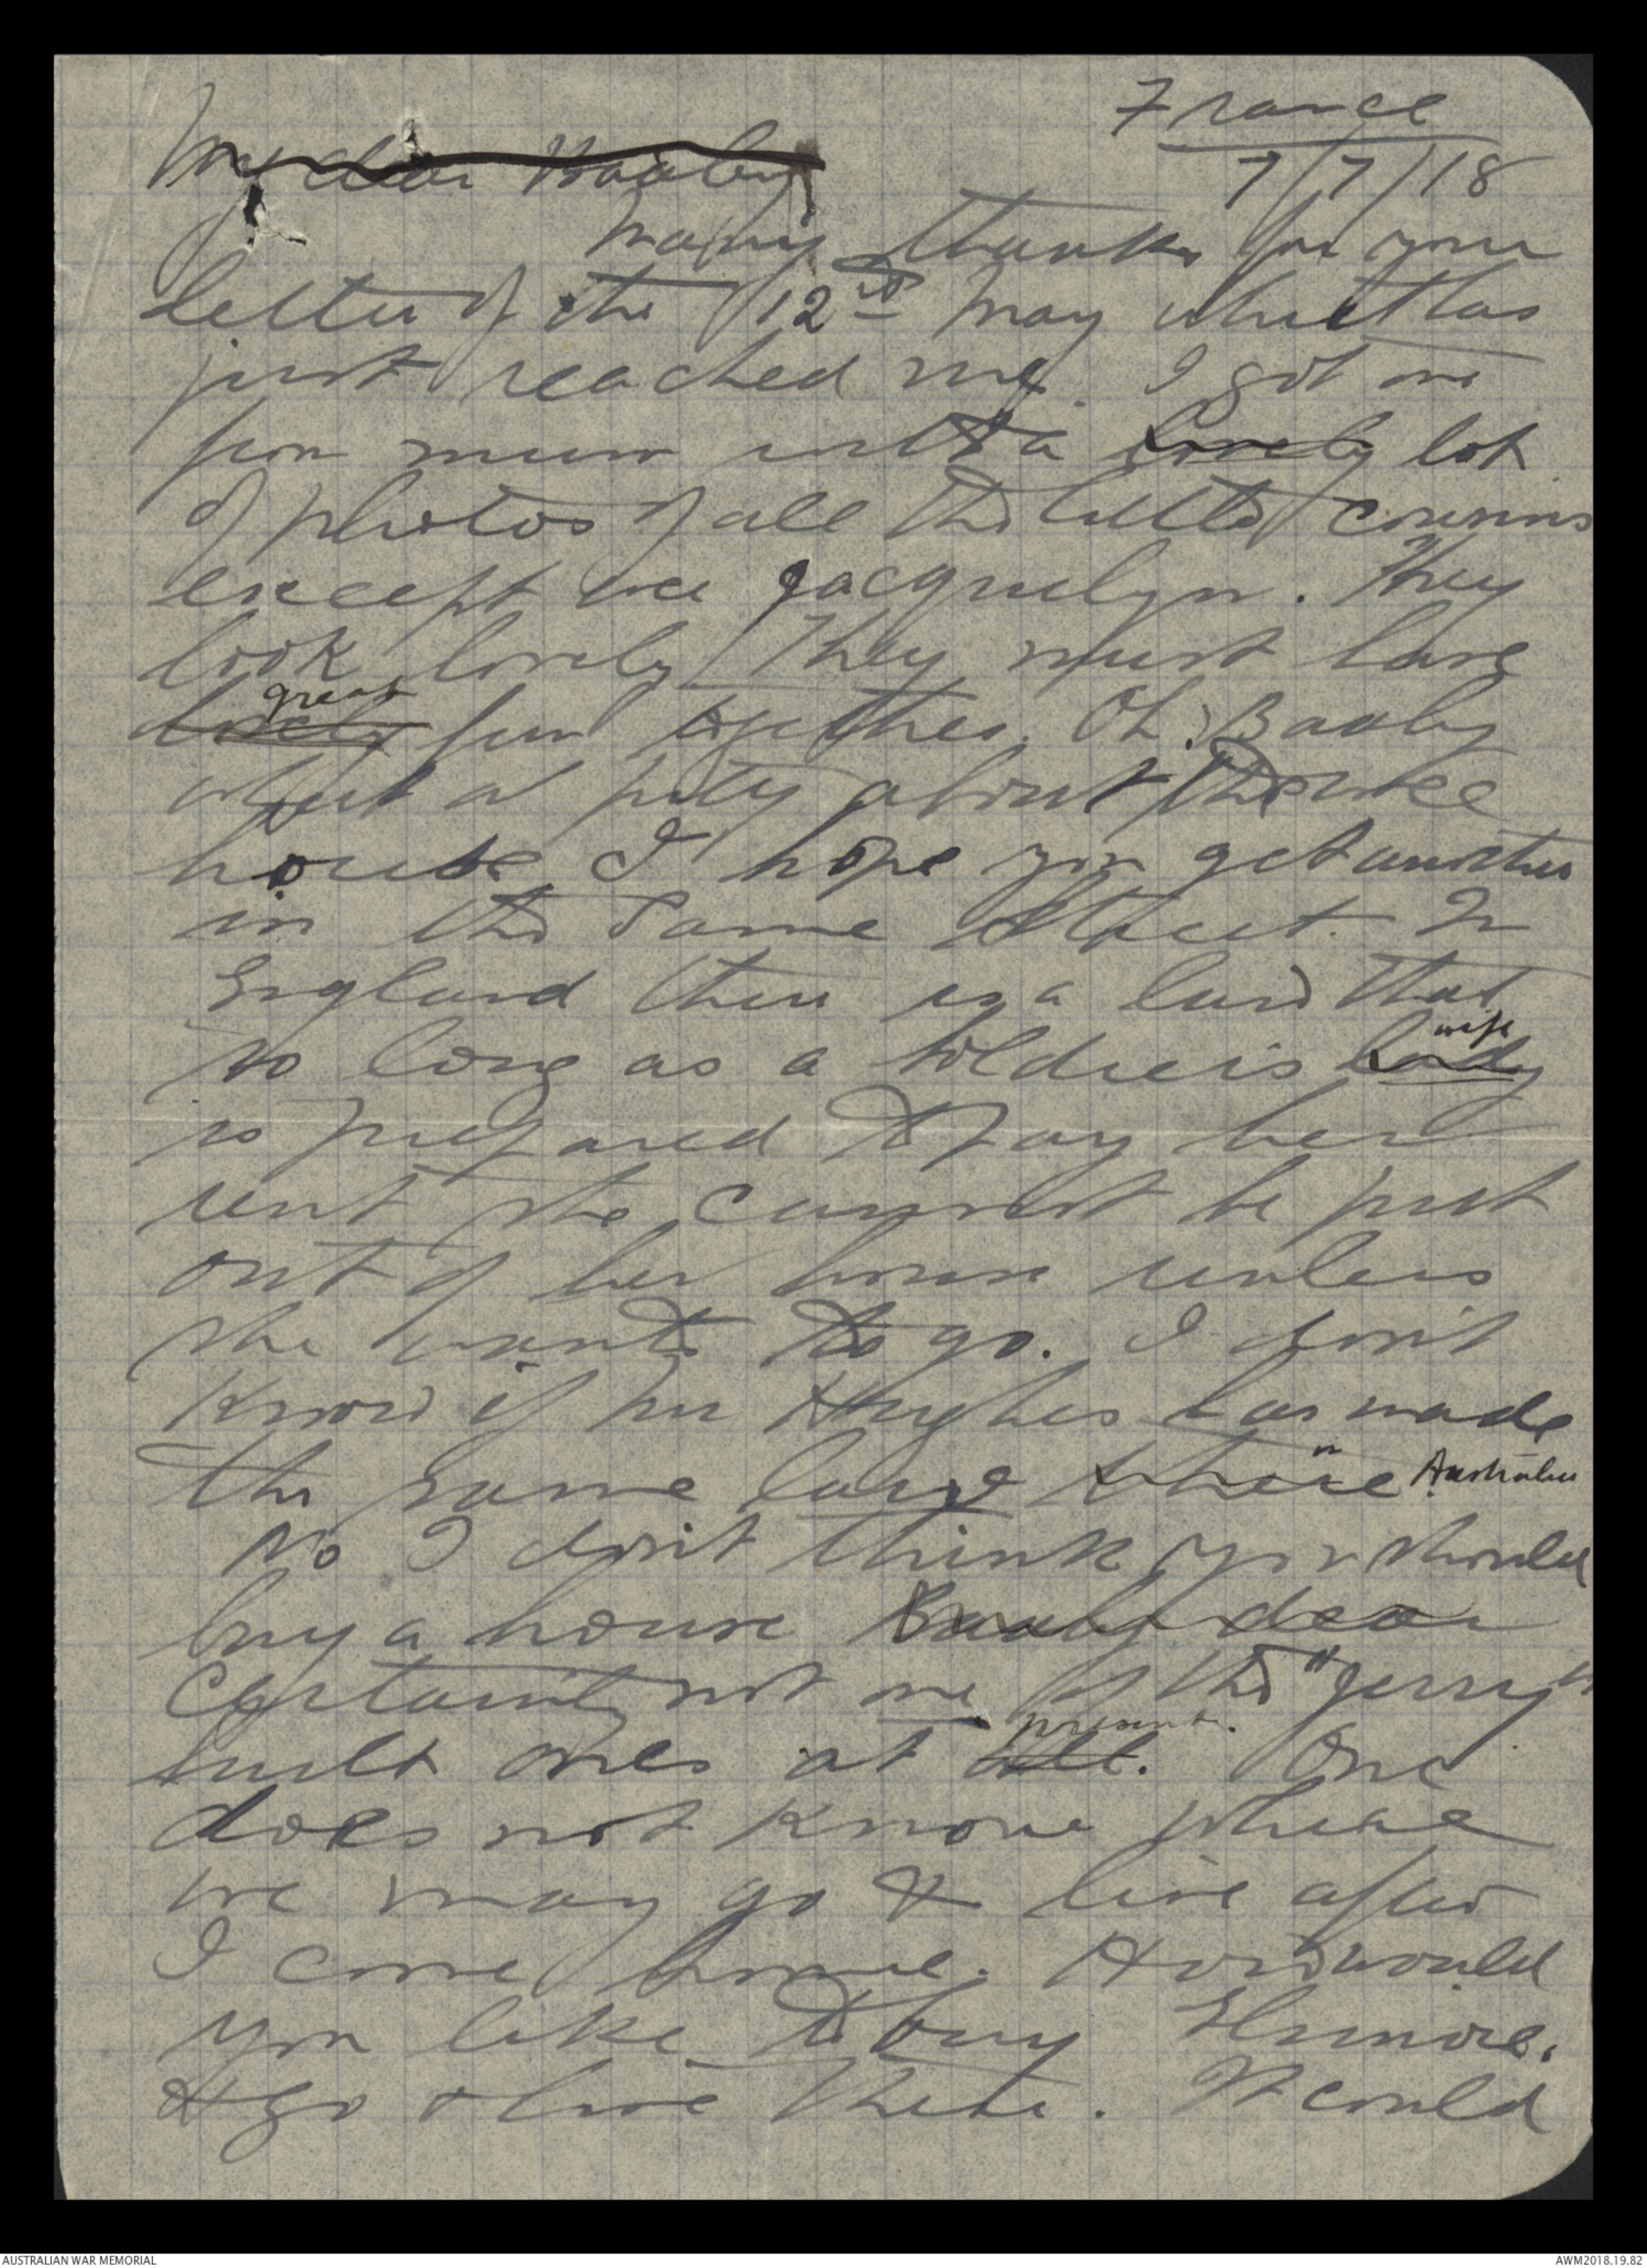 France
7/7/18
My dear Baaby
Many thanks for your
letter of the 12th May which has
just reached me. I got one
from mum with a lovely lot
of photos of all the little cousins
except wee Jacquelyn. They
look lovely. They must have
great
lovely fun together. Oh! Baaby
what a pity about the wee
house I hope you get another
in the same street. In
England there is a law that
wife
so long as a soldier's lady
is prepared to pay her
rent she cannot be put
out of her house unless
she wants to go. I don't
know if Mr Hughes has made
in Australia
the same law there
No I don't think you should
buy a house Baaby dear
certainly not one of the "jerry"
present.
built ones at all. One
does not know where
we may go & live after
I come home. How would
you like to buy
& go & live there. It could
AUSTRALIAN WAR MEMORIAL
AWM2018.19.82